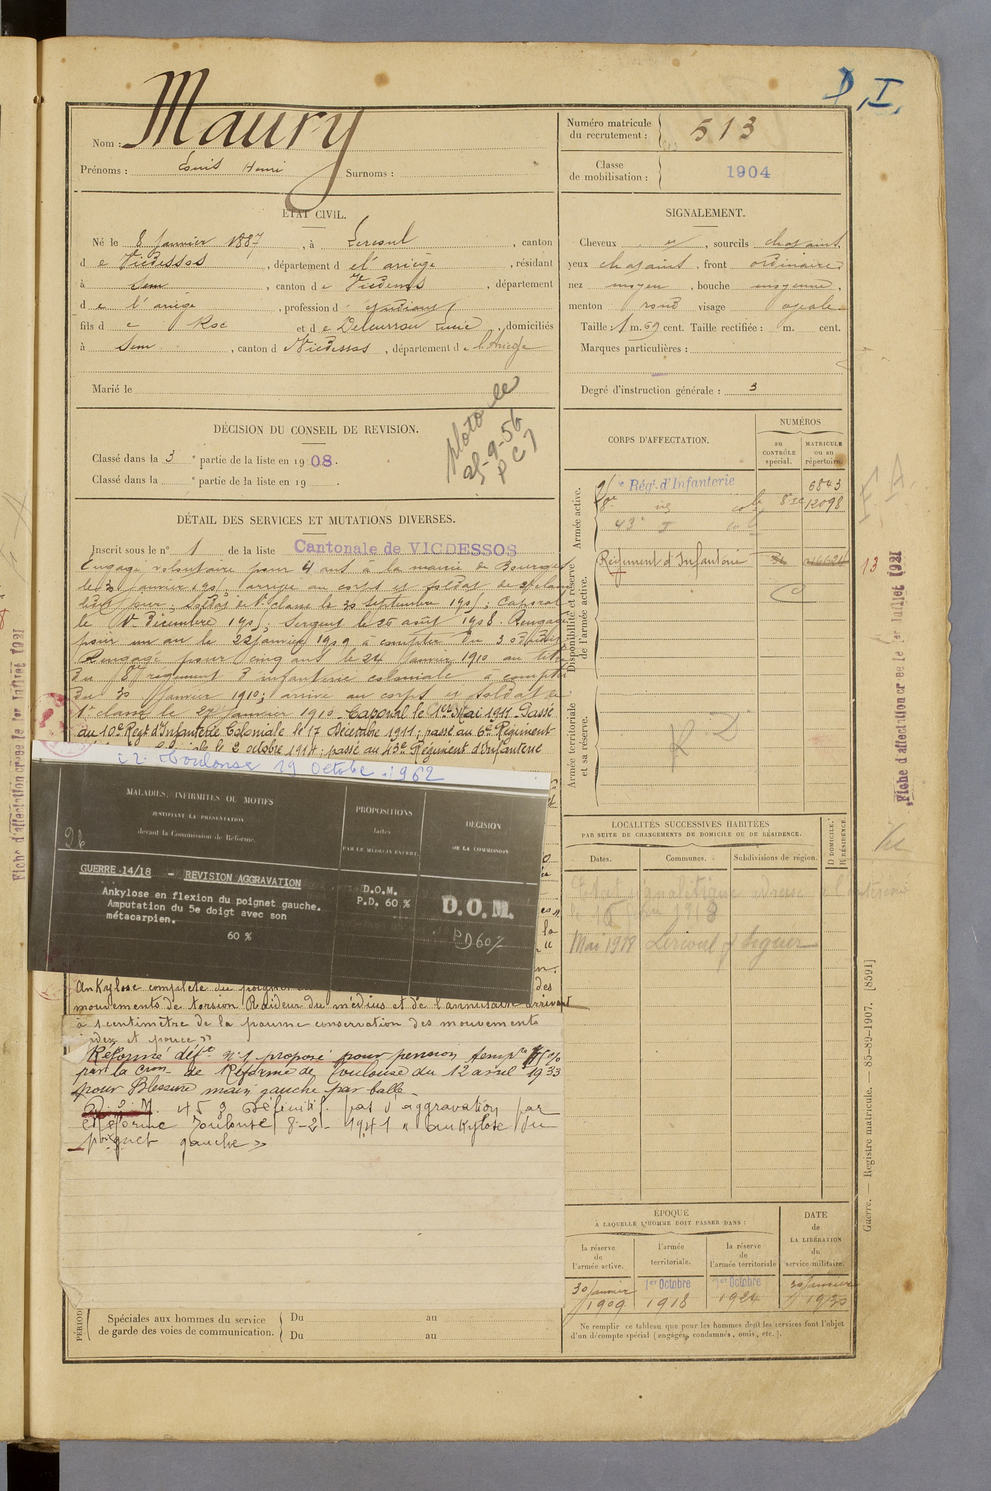 D.I.
Nom : Maury
Prénoms : Louis Henri Surnoms :
Numéro matricule du recrutement : 513
Classe de mobilisation : 1904
ÉTAT CIVIL.
Né le 8 Janvier 1887, à Lercoul, canton
de Vicdessos, département de l'ariège, résidant
à Sem, canton de Vicdessos, département
de l'ariège, profession d
fils de Roc et de Delcurrou, domiciliés
à Sem, canton de Vicdessos, département de l'Ariège
Marié le
SIGNALEMENT.
Cheveux, sourcils chatains
yeux chatains, front ordinaire
nez moyen, bouche moyenne,
menton rond visage ovale
Taille : 1 m. 69 cent. Taille rectifiée : m. cent.
Marques particulières :
Degré d'instruction générale : 3
DÉCISION DU CONSEIL DE REVISION.
Classé dans la 3e partie de la liste en 1908.
Classé dans la e partie de la liste en 19
photo le
25-9-56
DÉTAIL DES SERVICES ET MUTATIONS DIVERSES.
Inscrit sous le n° 1 de la liste Cantonale de VICDESSOS
Engagé volontaire pour 4 ans à la mairie de Bourges
le 30 janvier 1905, arrivé au corps et soldat de 2e classe
dudit jour, soldat de 1e classe le 30 septembre 1905; Caporal
le 1er Décembre 1905; Sergent le 26 août 1908. Rengagé
pour un an le 22 janvier 1909 à compter du 30 dudit
Rengagé pour cinq ans le 24 janvier 1910 au titre
du 8e régiment d'infanterie coloniale à compter
du 30 janvier 1910; arrivé au corps et soldat de
1e classe le 27 janvier 1910. Caporal le 1er Mai 1911. Passé
au 10e Regt d'Infanterie Coloniale le 17 Décembre 1911; passé au 6e Régiment
Coloniale le 2 octobre 1914; passé au 43e Régiment d'Infanterie
Toulouse 19 Octobre 1962
MALADIES, INFIRMITÉS OU MOTIFS
JUSTIFIANT LA PRÉSENTATION
devant la Commission de Réforme.
PROPOSITIONS
faites
PAR LE MÉDECIN EXPERT.
DÉCISION
DE LA COMMISSION
GUERRE 14/18 - REVISION AGGRAVATION
Ankylose en flexion du poignet gauche.
Amputation du 5e doigt avec son
métacarpien.
60 %
D.O.M.
P.D. 60 %
D.O.M.
PD 60%
Ankylose complète du poignet des
mouvements de torsion Raideur du médius et de l'annulaire arrivant
à 1 centimètre de la paume conservation des mouvements
index et pouce »
Réformé déf. n°1 proposé pour pension temp.
par la Cion de Réforme de Toulouse du 12 avril 1933
pour Blessure main gauche par balle
45 % Définitif. pas d'aggravation par
Réforme Toulouse 8-2-1941 « ankylose du
poignet gauche »
CORPS D'AFFECTATION.
NUMÉROS
au CONTRÔLE spécial.
MATRICULE ou au répertoire.
Armée active.
Régt. d'Infanterie 6843
8e 12098
43e
Disponibilité et réserve de l'armée active.
Régiment d'Infanterie
Armée territoriale et sa réserve.
LOCALITÉS SUCCESSIVES HABITÉES
PAR SUITE DE CHANGEMENTS DE DOMICILE OU DE RÉSIDENCE.
Dates. Communes. Subdivisions de région. D DOMICILE. R RÉSIDENCE.
Mai 1919 Lercoul Siguer
ÉPOQUE
À LAQUELLE L'HOMME DOIT PASSER DANS :
la réserve de l'armée active.
l'armée territoriale.
la réserve de l'armée territoriale
DATE de LA LIBÉRATION du service militaire.
30 Janvier 1909
1er Octobre 1918
1er Octobre 1924
30 Janvier 1930
Ne remplir ce tableau que pour les hommes dont les services font l'objet
d'un décompte spécial (engagés, condamnés, omis, etc.).
Spéciales aux hommes du service
de garde des voies de communication.
Du au
Du au
Fiche d'affectation créée le 1er Juillet 1931
Fiche d'affectation créée le 1er Juillet 1931
13
Guerre. — Registre matricule. — 85-89-1907. [8591]